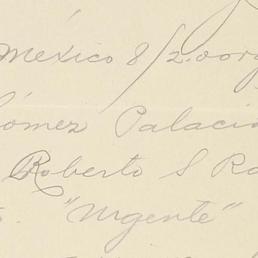 México 8/2.
Gómez Palacio
Roberto S
"Urgente"